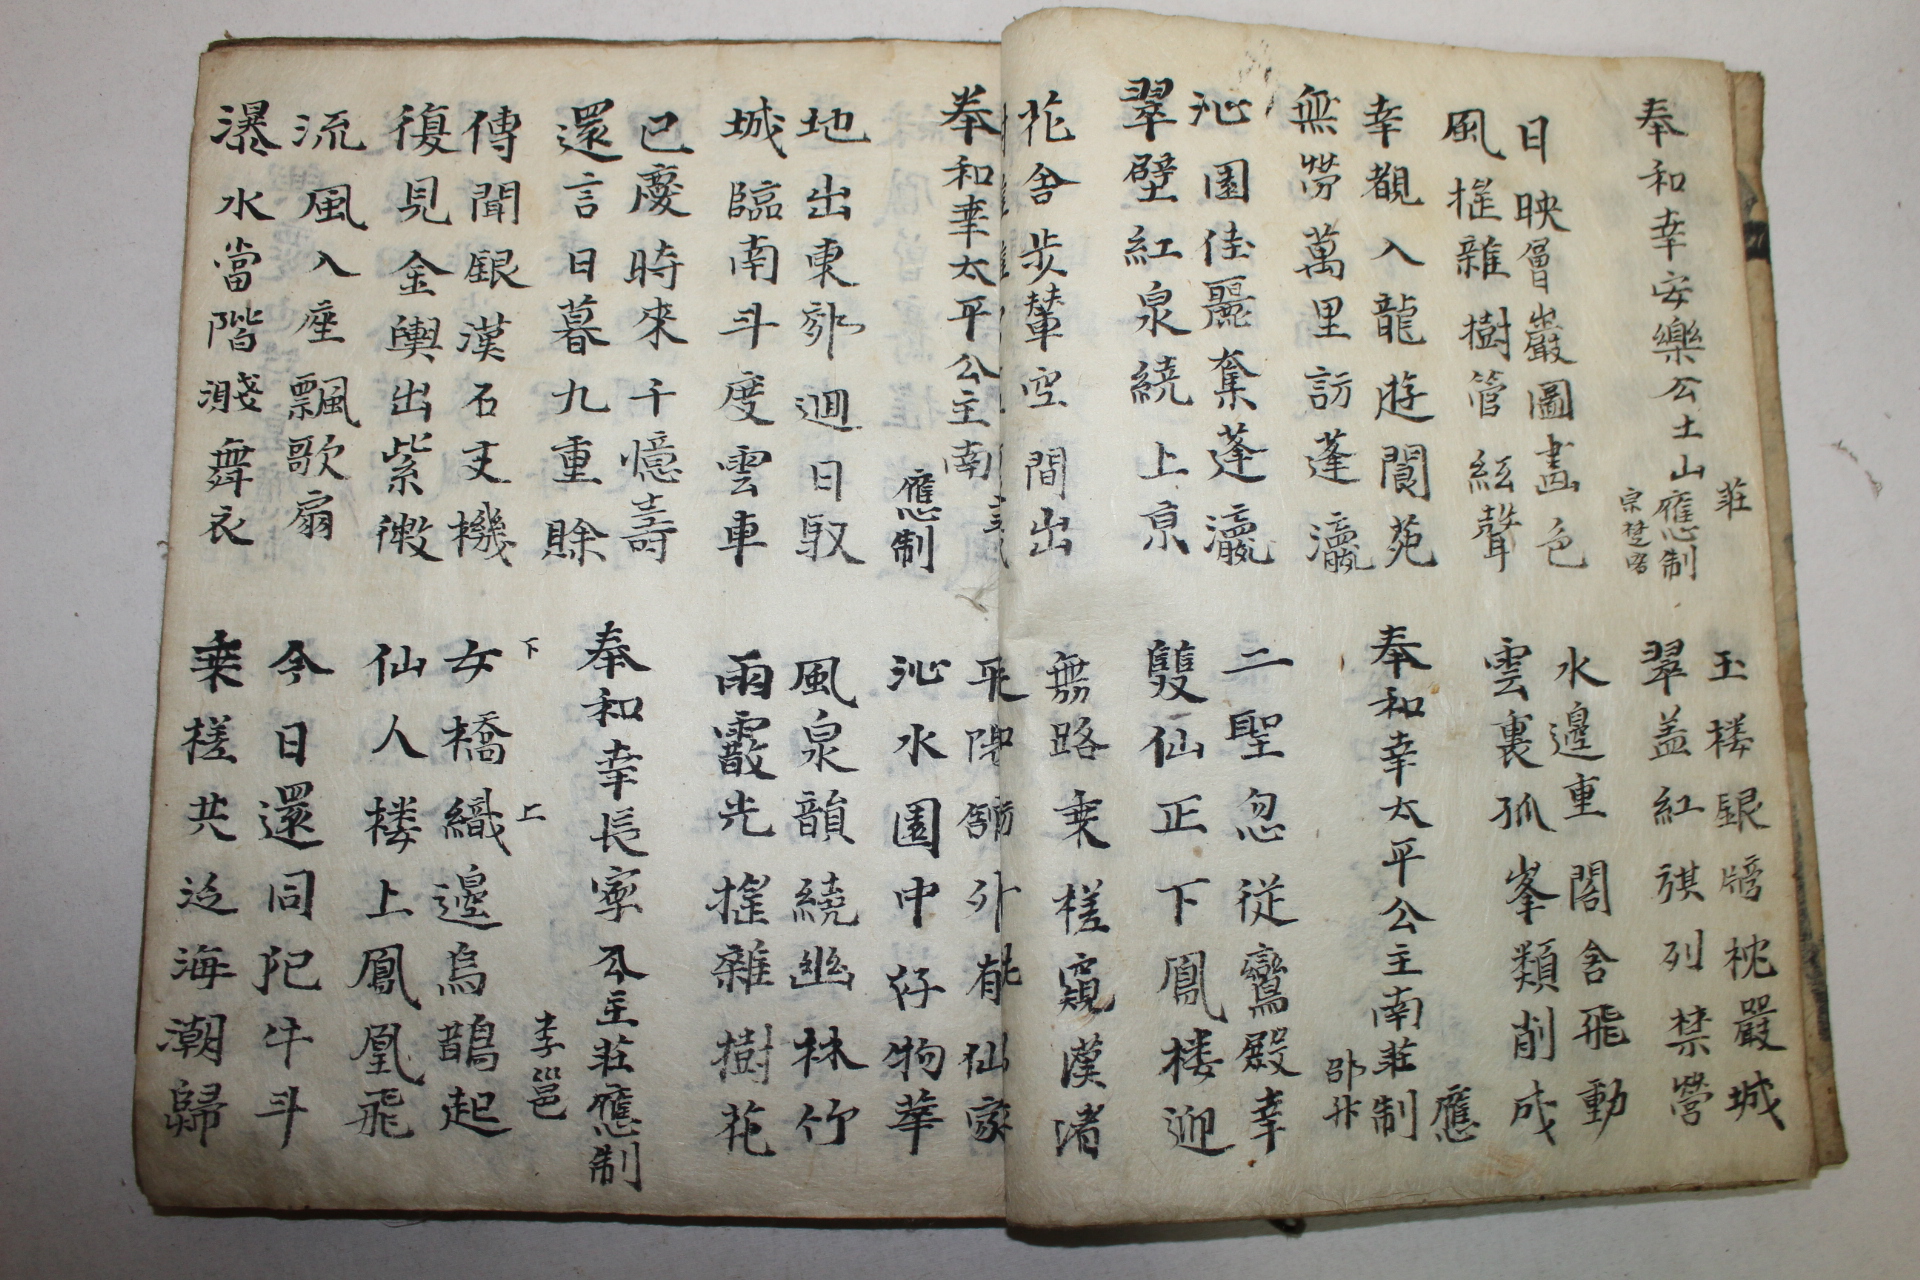 奉和幸安樂公土山莊應制
宗楚客
玉楼銀牓枕嚴城
翠盖紅旂列禁營
日映層巖圖畫色
風摧雜樹管絃聲
水邊重閣含飛動
雲裏孤峯類削成
幸覩入龍遊閬苑
無勞萬里訪蓬瀛
奉和幸太平公主南莊應制
邵升
沁園佳麗奪蓬瀛
翠壁紅泉繞上京
二聖忽從鸞殿幸
雙仙正下鳳楼迎
花含步輦空間出
無路乘槎窺漢渚
奉和幸太平公主南
應制
平陽館外有仙家
沁水園中好物華
地出東郊迴日馭
城臨南斗度雲車
風泉韻繞幽林竹
雨霰光摧雜樹花
已慶時來千憶壽
還言日暮九重賖
奉和幸長寧公主莊應制
李邕
傳聞銀漢石支機
復見金輿出紫微
下 上
女橋織邊烏鵲起
仙人楼上鳳凰飛
流風入座飄歌扇
瀑水當階濺舞衣
今日還同犯牛斗
乘槎共泛海潮歸